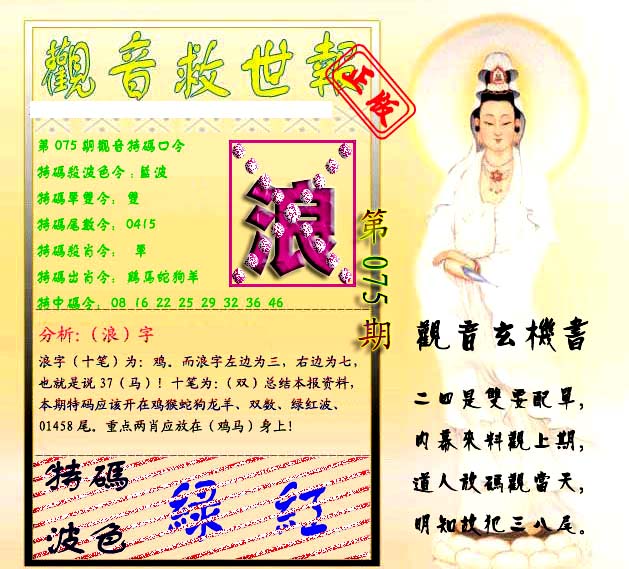 觀音救世報
正版
第075期觀音特碼口令
特碼殺波色令:藍波
特碼單雙令: 雙
特碼尾數令: 0415
特碼殺肖令: 單
特碼出肖令: 鷄馬蛇狗羊
特中碼令: 08 16 22 25 29 32 36 46
浪
第075期
分析:(浪)字
浪字(十笔)为: 鸡。而浪字左边为三, 右边为七,
也就是说 37(马)! 十笔为:(双)总结本报资料,
本期特码应该开在鸡猴蛇狗龙羊、双数、绿红波、
01458 尾。重点两肖应放在(鸡马)身上!
特碼
波色
綠 紅
觀音玄機書
二四是雙要配單,
内幕來料觀上期,
道人放碼觀當天,
明知故犯三八尾。